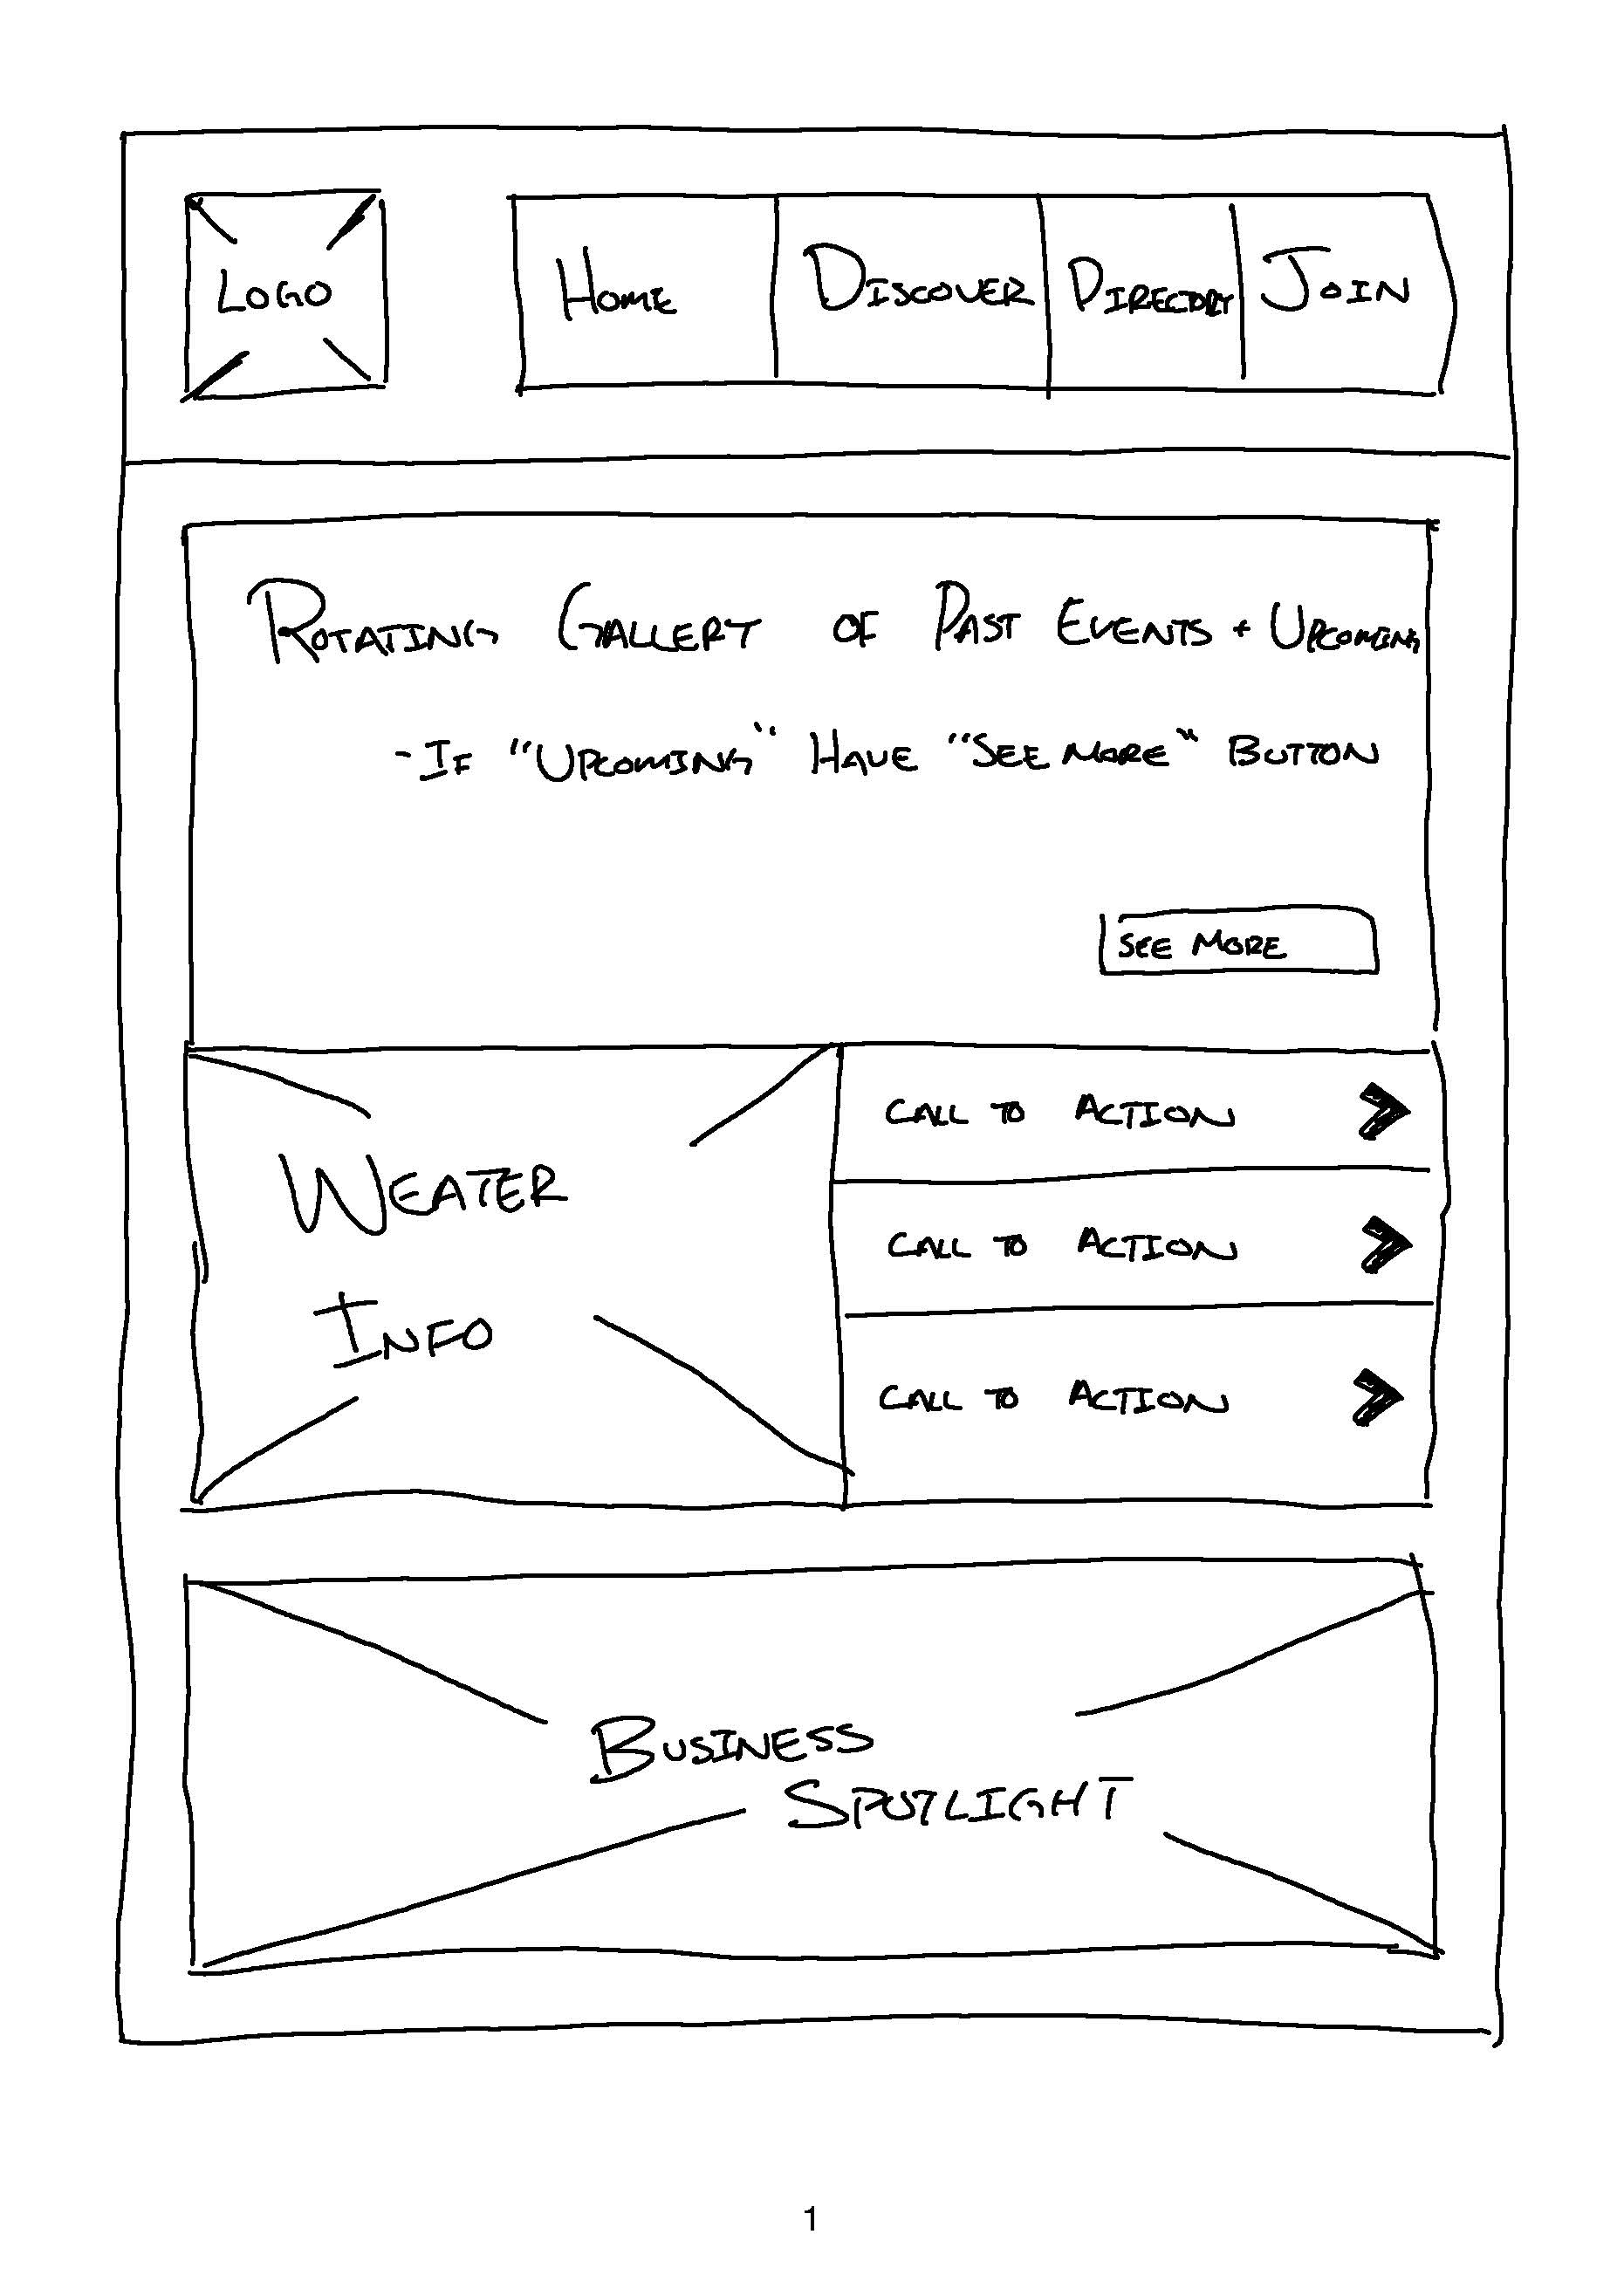 LOGO
HOME
DISCOVER
DIRECTORY
JOIN
ROTATING GALLERY OF PAST EVENTS + UPCOMING
- IF "UPCOMING" HAVE "SEE MORE" BUTTON
SEE MORE
WEATER
INFO
CALL TO ACTION
CALL TO ACTION
CALL TO ACTION
BUSINESS
SPOTLIGHT
1